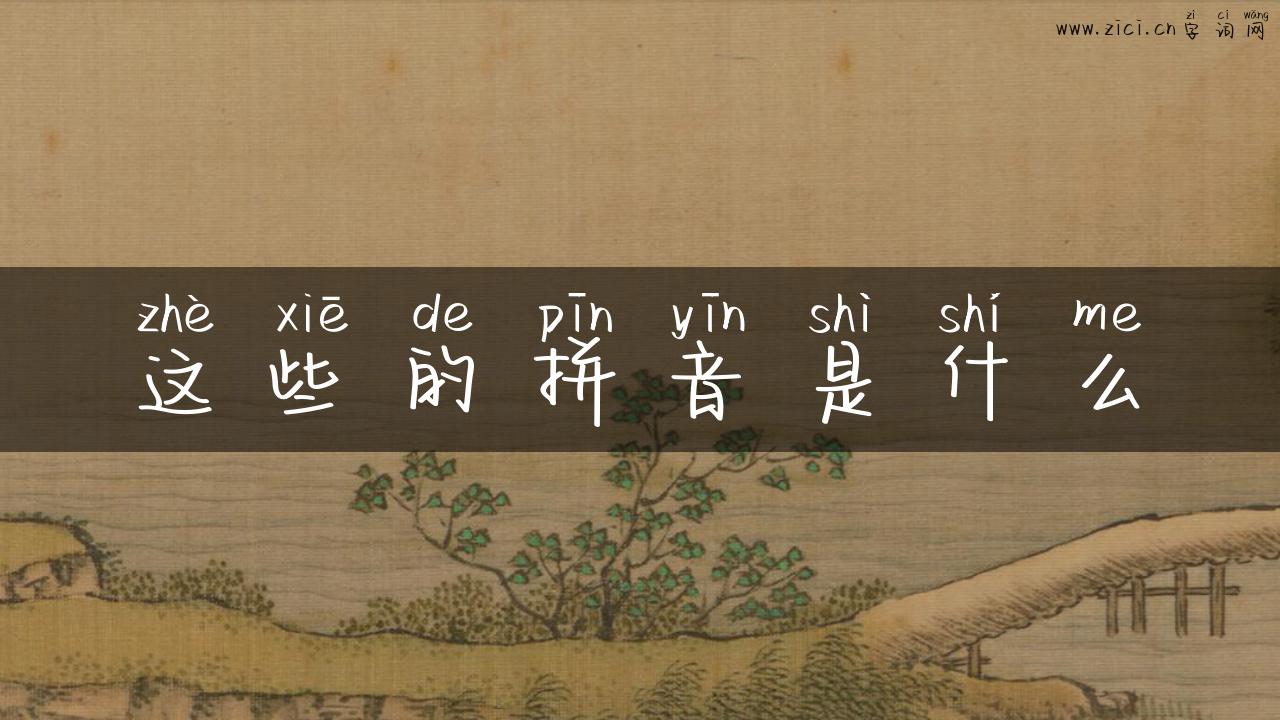 zì cí wǎng
www.zici.cn 字 词 网
zhè xiē de pīn yīn shì shí me
这 些 的 拼 音 是 什 么